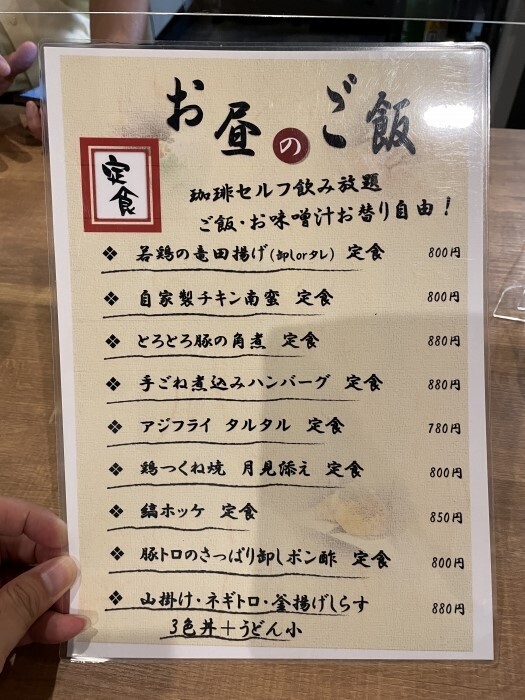 お昼のご飯
定食
珈琲セルフ飲み放題
ご飯・お味噌汁お替り自由！
❖ 若鶏の竜田揚げ(卸しorタレ) 定食 800円
❖ 自家製チキン南蛮 定食 800円
❖ とろとろ豚の角煮 定食 880円
❖ 手ごね煮込みハンバーグ 定食 880円
❖ アジフライ タルタル 定食 780円
❖ 鶏つくね焼 月見添え 定食 800円
❖ 縞ホッケ 定食 850円
❖ 豚トロのさっぱり卸しポン酢 定食 800円
❖ 山掛け・ネギトロ・釜揚げしらす 880円
3色丼＋うどん小